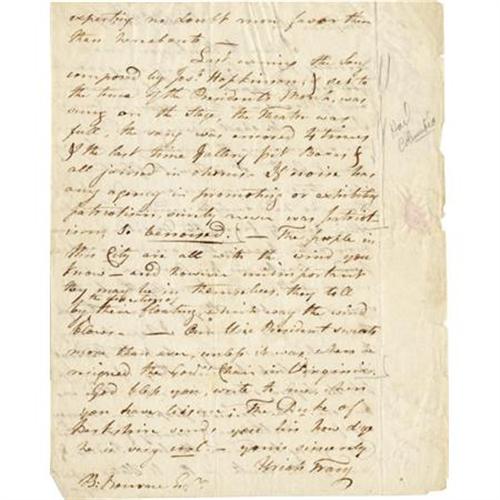 expecting no doubt more favor than
than merchants —
Last evening the Song
composed by Jos. Hopkinson, & set to
the tune of the Presidents March, was
sung on the Stage, the Theatre was
full, the song was encored 4 times
& the last time Gallery pit Boxes &
all joined in chorus. If noise has
any agency in promoting or exhibiting
patriotism, surely never was patriot
ism so benoised. — The people in
this City are all with the wind you
know — and however unimportant
they may be in themselves, they tell
of the
by their floating which way the wind
blows — Our Vice President sweats
more than ever, unless it was when he
resigned the Govrs Chair in Virginia.
God bless you, write to me, when
you have leisure; The Duke of
Berkshire sends you his how d'ye
he is very — yours sincerely
Uriah Tracy
B. Bourne Esqr
Hail
Columbia